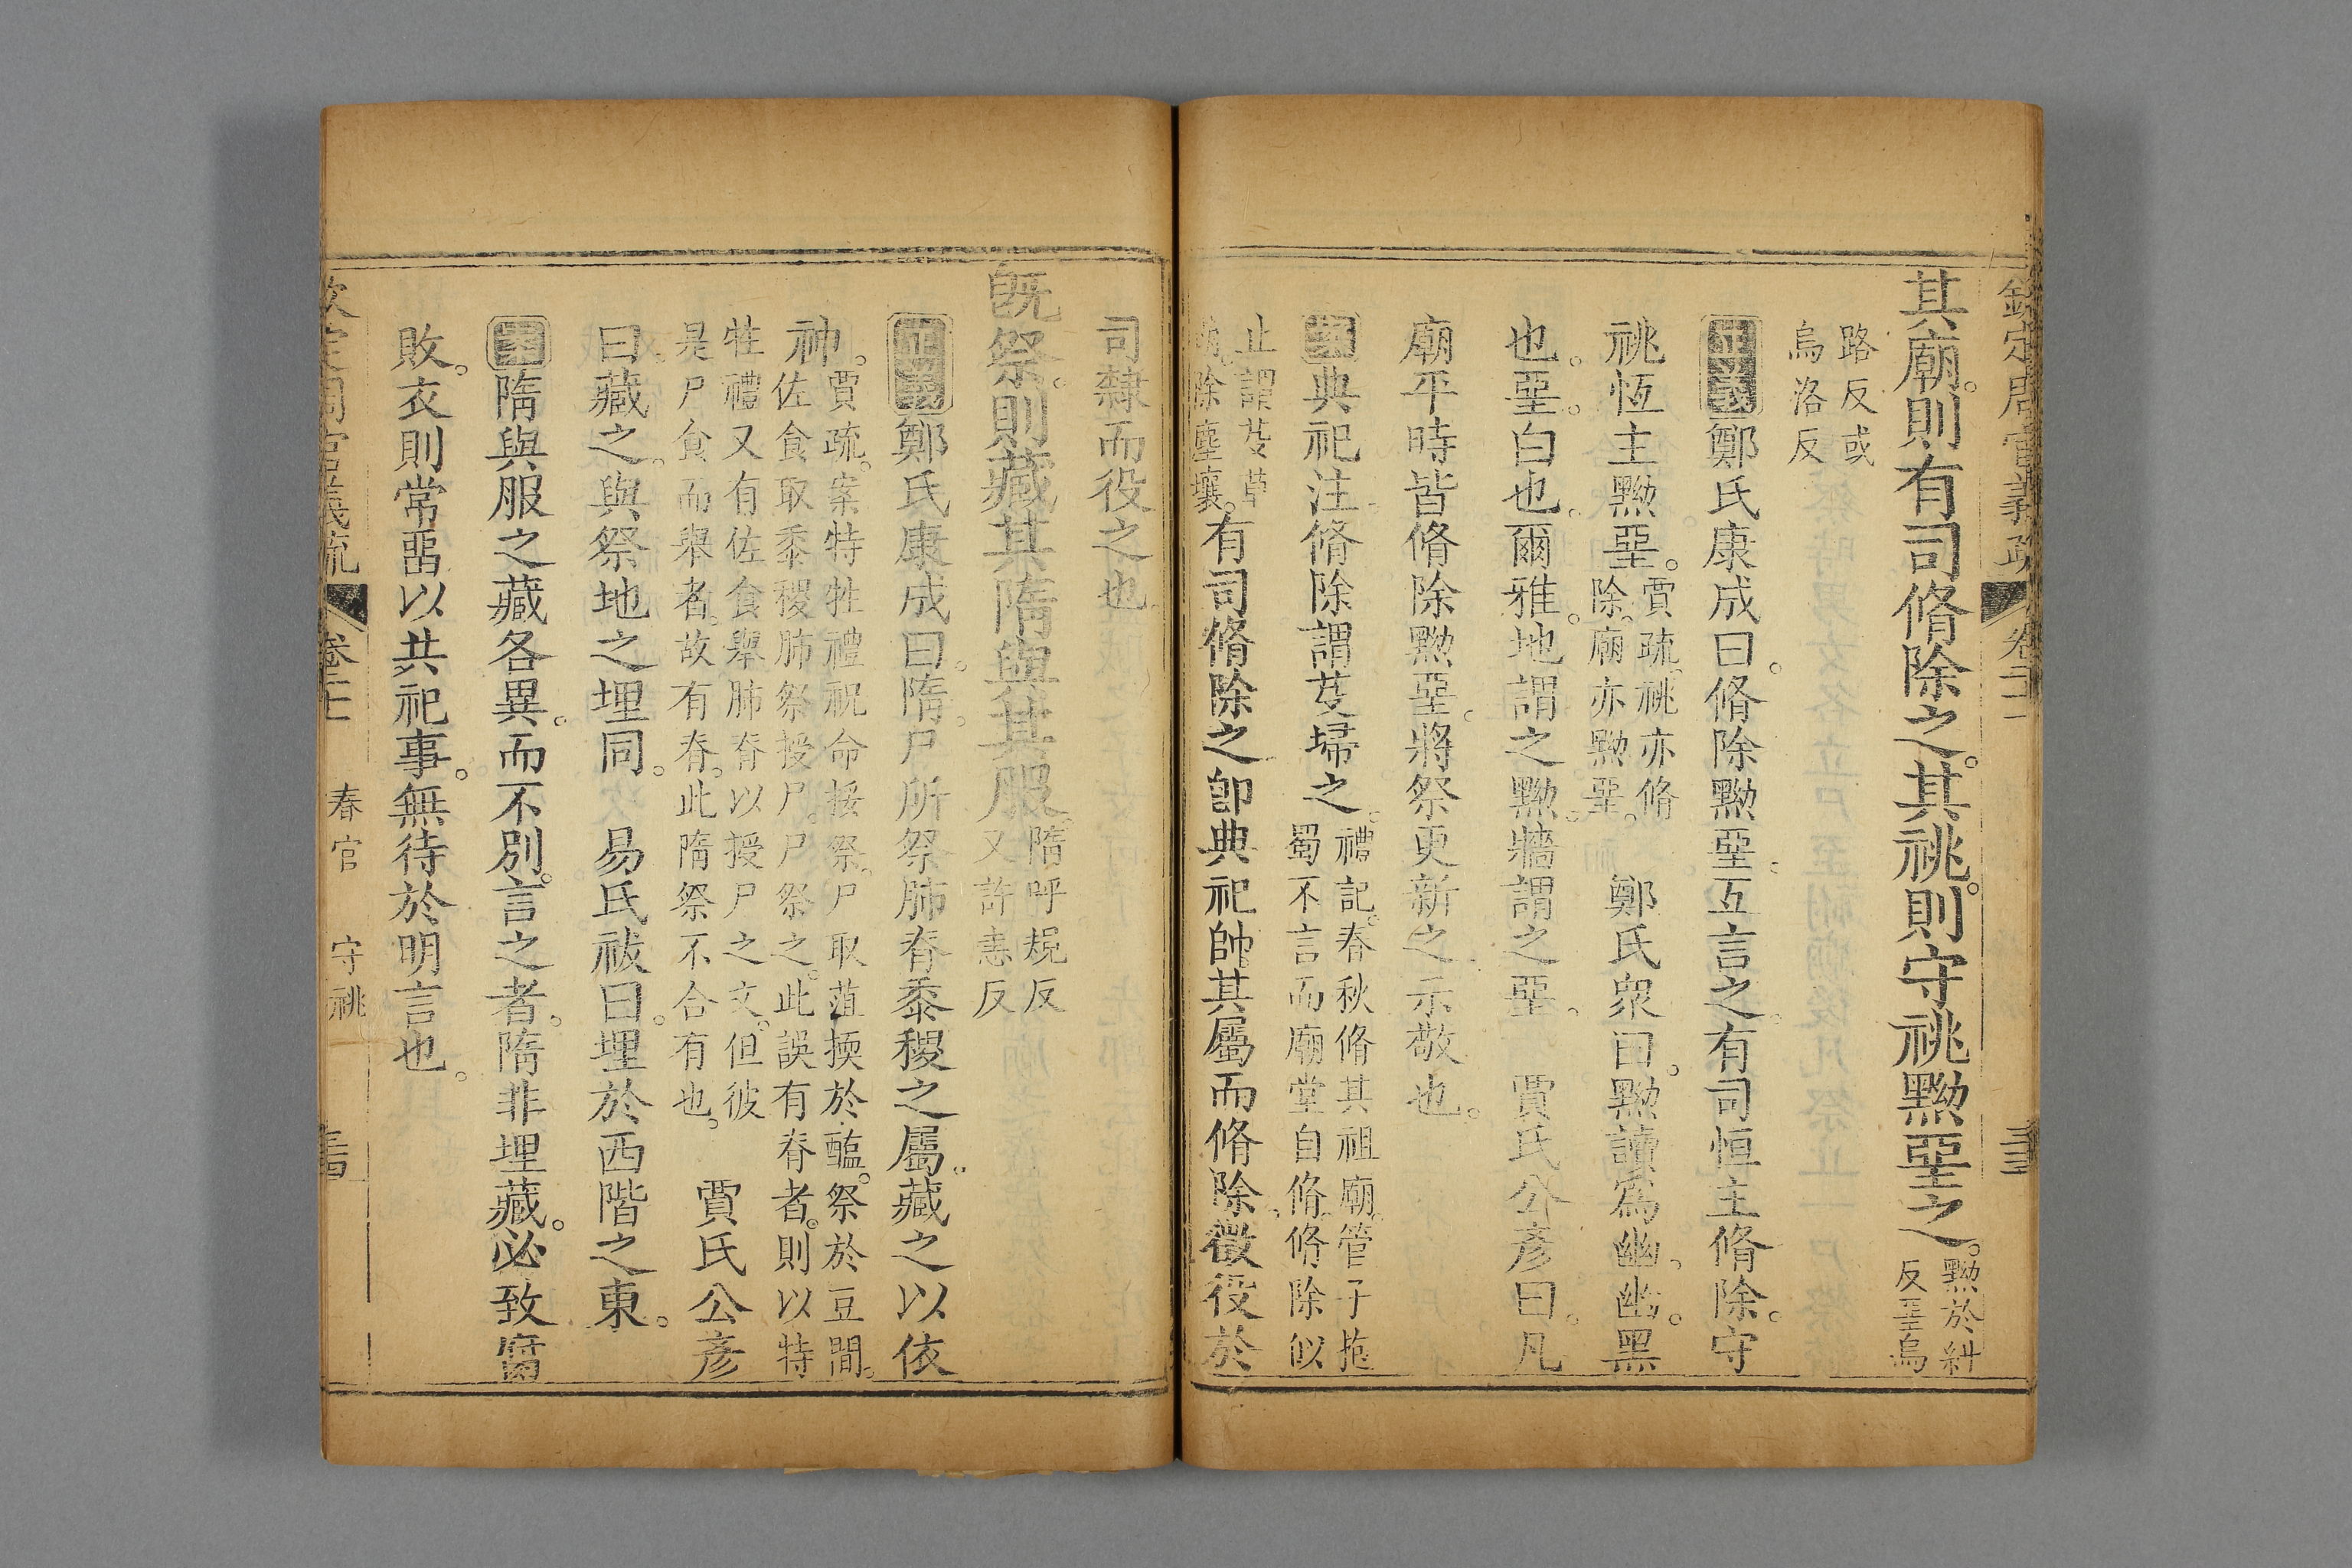 欽定周官義疏 卷二十一 三三
其廟。則有司脩除之。其祧。則守祧黝堊之。黝於糾
反堊烏
路反或
烏洛反
正義鄭氏康成曰。脩除黝堊。互言之。有司恒主脩除。守
祧恆主黝堊。賈疏。祧亦脩
除。廟亦黝堊。 鄭氏眾曰。黝讀為幽。幽。黑
也。堊。白也。爾雅。地謂之黝。牆謂之堊。 賈氏公彥曰。凡
廟平時皆脩除黝堊。將祭更新之。示敬也。
案典祀注。脩除。謂芟埽之。禮記。春秋脩其祖廟。管子抱
蜀不言而廟堂自脩。脩除似
止謂芟草
萌。除塵壤。有司脩除之。卽典祀帥其屬而脩除。徵役於
司隸而役之也。
旣祭。則藏其隋與其服。隋呼規反
又許恚反
正義鄭氏康成曰。隋。尸所祭肺脊黍稷之屬。藏之以依
神。賈疏。案特牲禮祝命挼祭。尸取菹㨎於醢。祭於豆間。
佐食取黍稷肺祭授尸。尸祭之。此誤有脊者。則以特
牲禮又有佐食舉肺脊以授尸之文。但彼
是尸食而舉者。故有脊。此隋祭不合有也。 賈氏公彥
曰。藏之。與祭地之埋同。 易氏祓曰。埋於西階之東。
案隋與服之藏各異。而不別言之者。隋非埋藏。必致腐
敗。衣則常畱以共祀事。無待於明言也。
欽定周官義疏 卷二十一 春官 守祧 三四